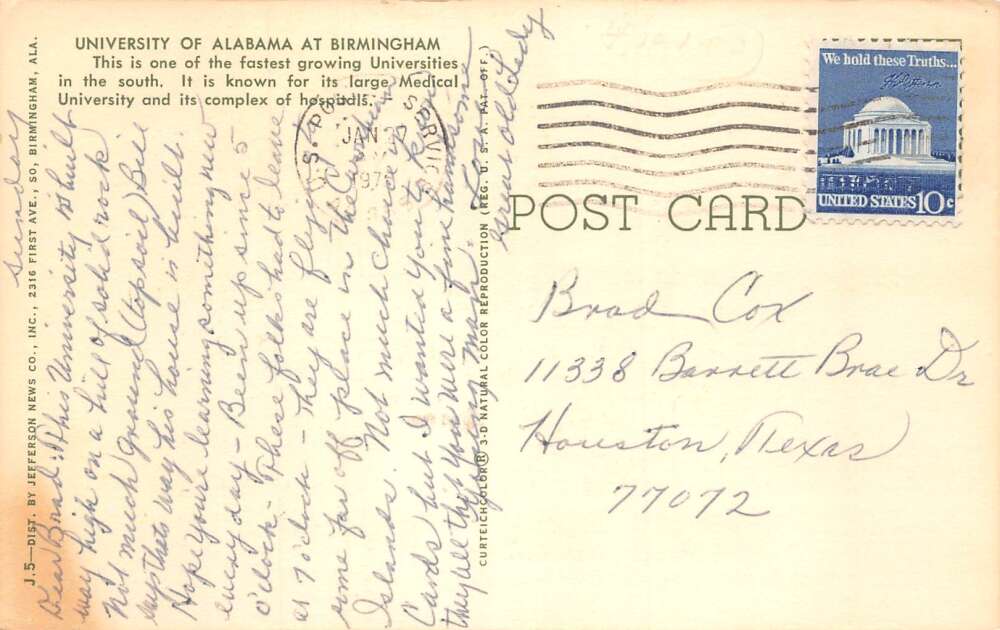 UNIVERSITY OF ALABAMA AT BIRMINGHAM
This is one of the fastest growing Universities
in the south. It is known for its large Medical
University and its complex of hospitals.
J. 5—DIST. BY JEFFERSON NEWS CO., INC., 2316 FIRST AVE., SO., BIRMINGHAM, ALA.
Sunday
Dear Brad: This University is built
way high on a hill of solid rock
Not much ground (topsoil) Bill
says thets way his house is built.
Hope you're learning somithing new
every day – Been up since 5
o'clock – These folks had to leave
at 7 o'clock – They are flying
some far off place in the Carribean
Islands. Not much choice in
Cards but I wanted you to know
they all tho't you were a fine handsome
young man.
Love
Great old Lady
CURTEICHCOLOR® 3-D NATURAL COLOR REPRODUCTION (REG. U. S. A. PAT. OFF.)
U.S. POSTAL SERVICE
JAN 20
197
We hold these Truths...
UNITED STATES 10c
POST CARD
Brad Cox
11338 Barrett Brae Dr
Houston, Texas
77072